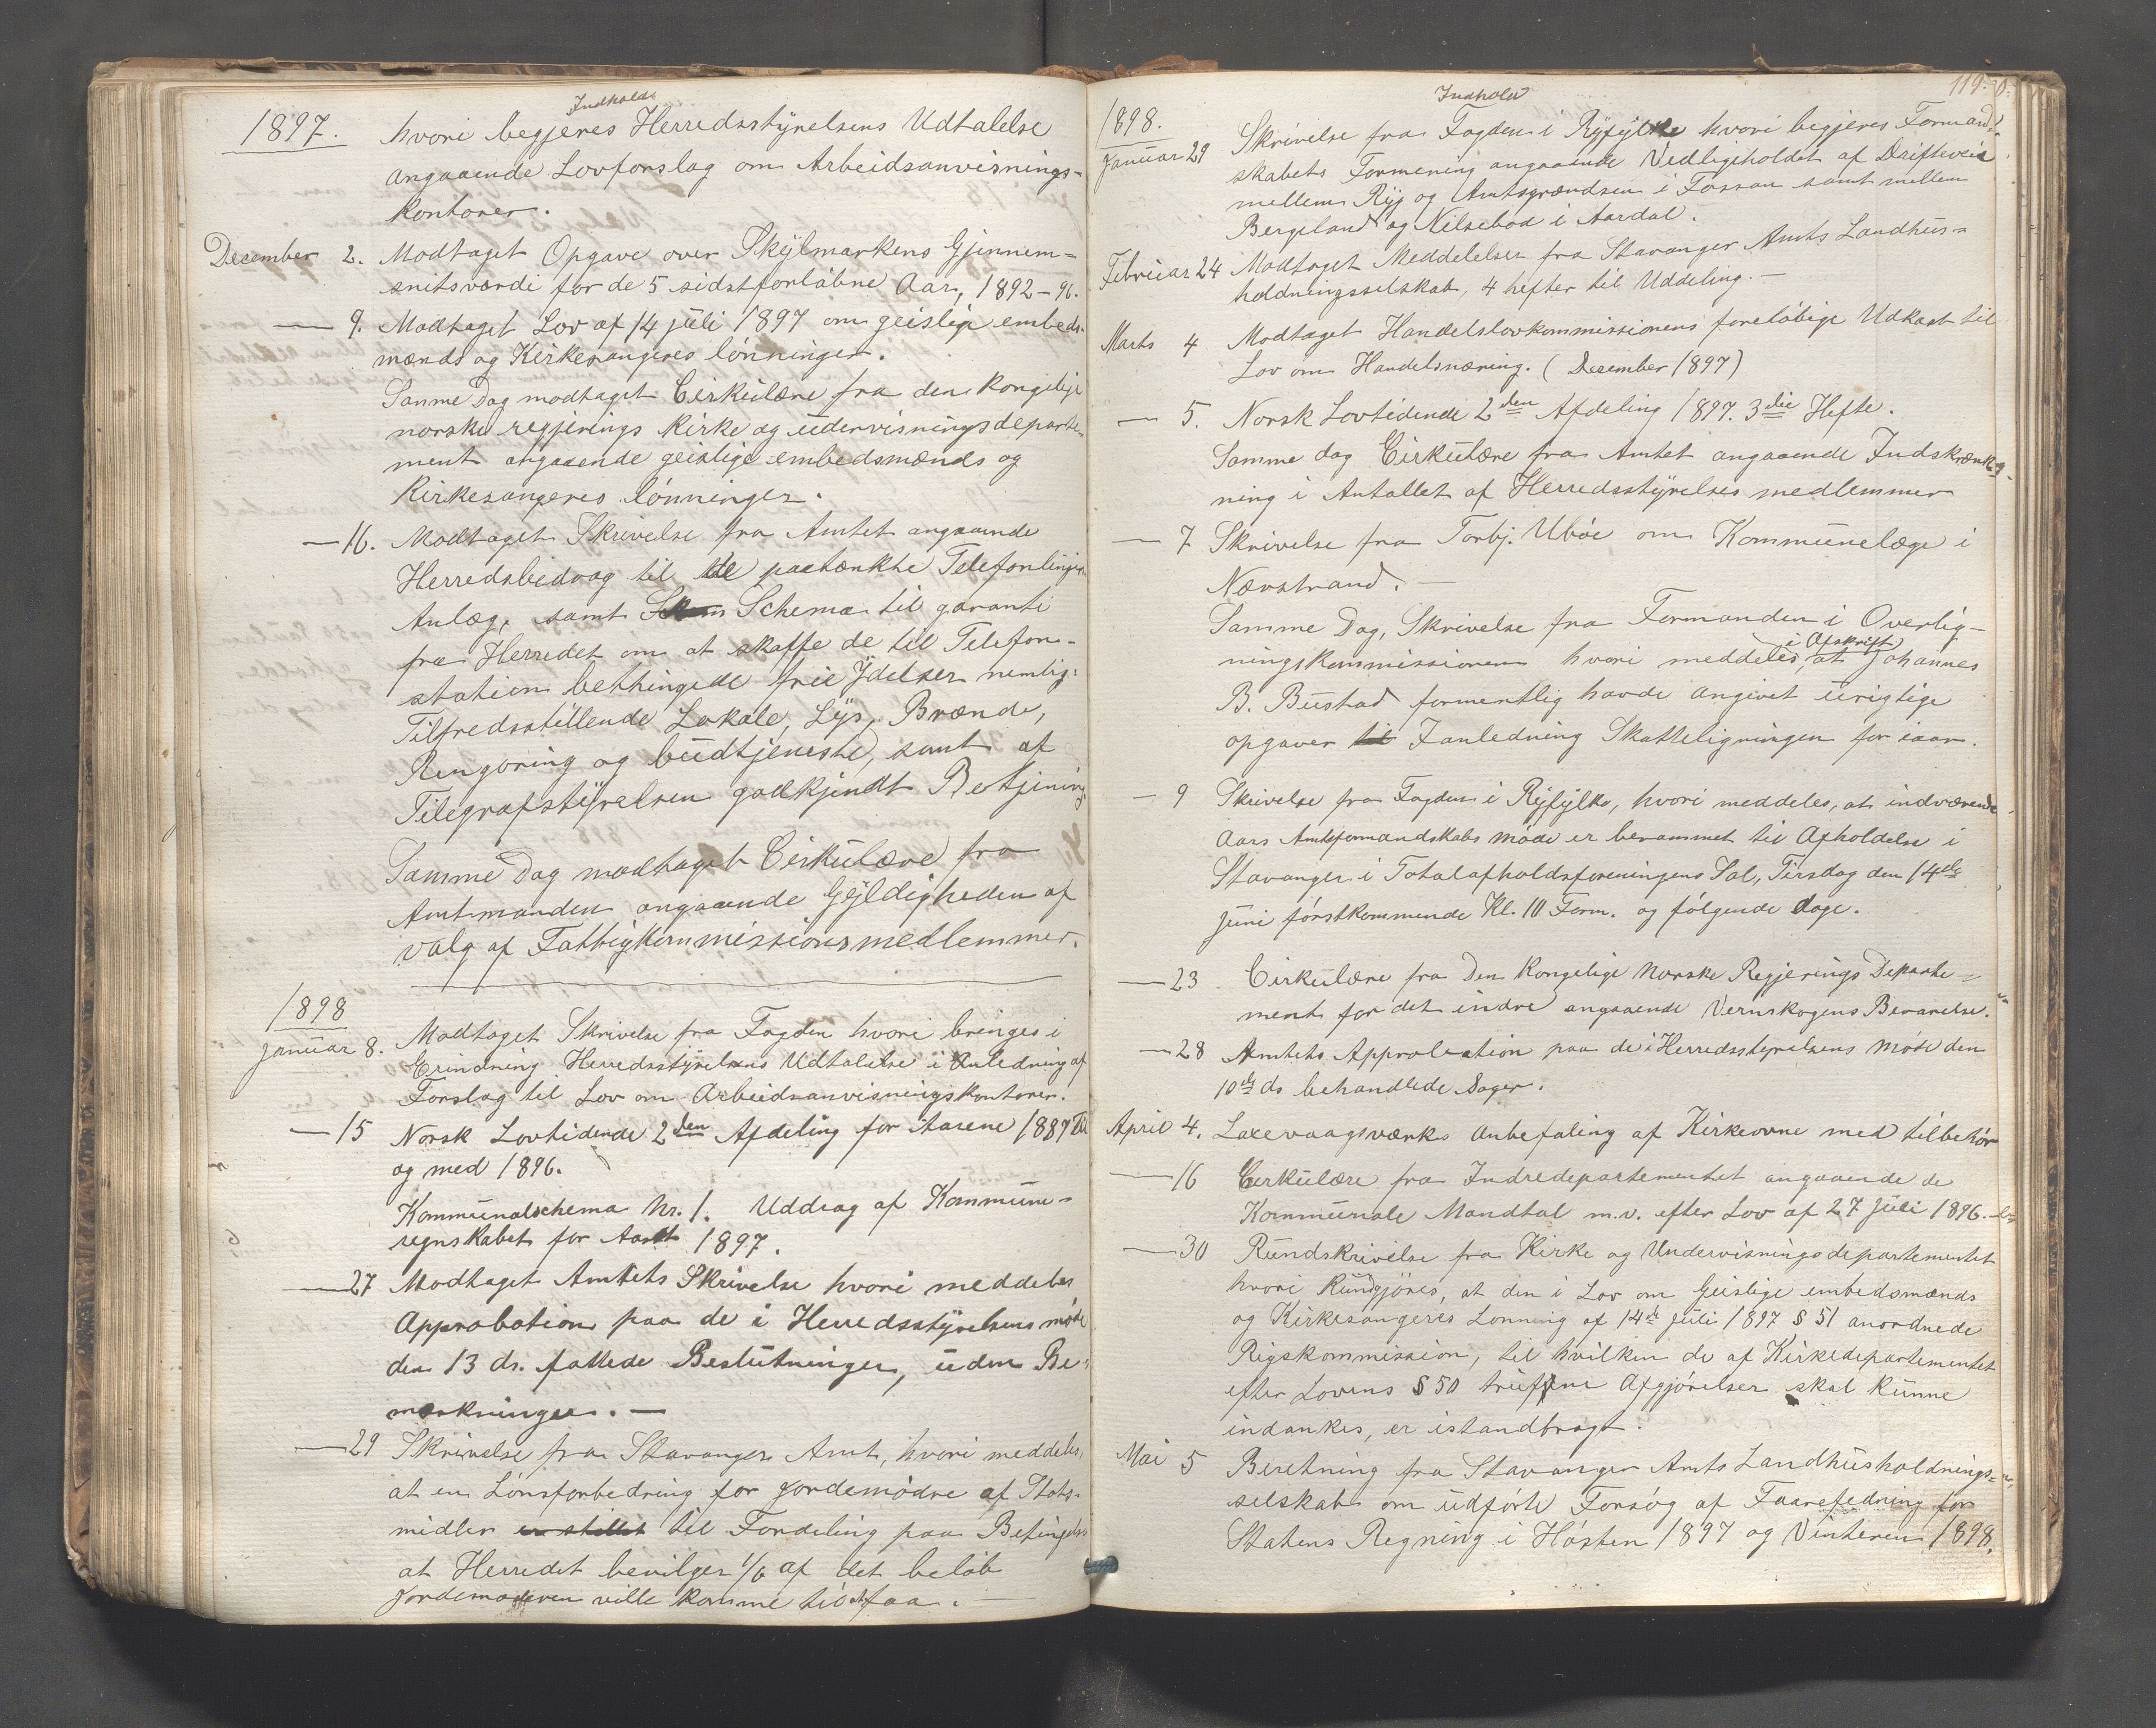 Indhold
1897. hvori begjeres Herredsstyrelsens Udtalelse
angaaende Lovforslag om Arbeidsanvisnings-
Kontorer.
December 2. Modtaget Opgave over Skylmarkens Gjennem-
snitsværdi for de 5 sidstforløbne Aar, 1892-96.
— 9. Modtaget Lov af 14 juli 1897 om geislige embeds-
mænds og Kirkesangeres lønninger.
Samme Dag modtaget Cirkulære fra den Kongelige
norske regjerings Kirke og undervisningsdeparte-
ment angaaende geislige embedsmænds og
Kirkesangeres lønninger.
— 16. Modtaget Skrivelse fra Amtet angaaende
Herredsbidrag til de paatænkte Telefonlinjer
Anlæg, samt Schema til garanti
fra Herredet om at skaffe de til Telefon-
station bethingede frie Ydelser nemlig:
Tilfredsstillende Lokale, Lys, Brænde,
Rengøring og budtjeneste, samt af
Telegrafstyrelsen godkjendt Betjening
Samme Dag modtaget Cirkulære fra
Amtmanden angaaende Gyldigheden af
valg af Fattigkommissionsmedlemmer.
1898
Januar 8. Modtaget Skrivelse fra Fogden hvori bringes i
Erindring Herredsstyrelsens Udtalelse i Anledning af
Forslag til Lov om Arbeidsanvisningskontorer.
— 15 Norsk Lovtidende 2den Afdeling for Aarene 1887 Til
og med 1896.
Kommunalschema Nr. 1. Uddrag af Kommune-
regnskabet for Aaret 1897.
— 27 Modtaget Amtets Skrivelse hvori meddeles
Approbation paa de i Herredsstyrelsens møde
den 13 ds. fattede Beslutninger, uden Be-
mærkninger. —
— 29 Skrivelse fra Stavanger Amt, hvori meddeles,
at en Lønsforbedring for jordemødre af Stats-
midler er stillet til Fordeling paa Betingelse
at Herredet beviliger 1/6 af det beløb
Jordemoderen ville komme til at faa. —
119.
Indhold
1898.
Januar 29 Skrivelse fra Fogden i Ryfylke hvori begjeres Formand-
skabets Formening angaaende Vedligeholdet af Drifteveie
mellem Ryg og Amtsgrændsen i Fossan samt mellem
Bergeland og Nilsebod i Aardal.
Februar 24 Modtaget Meddelelser fra Stavanger Amts Landhus-
holdningsselskab, 4 hefter til Uddeling. —
Marts 4 Modtaget Handelslovkommissionens foreløbige Udkast til
Lov om Handelsnæring. (December 1897)
— 5. Norsk Lovtidende 2den Afdeling 1897. 3die Hefte.
Samme dag Cirkulære fra Amtet angaaende Indskrænk-
ning i Antallet af Herredsstyrelses medlemmer
— 7 Skrivelse fra Torbj. Ubøe om Kommunelæge i
Nærstrand. —
Samme Dag, Skrivelse fra Formanden i Overlig-
ningskommissionen hvori meddeles, i Afskrift at Johannes
B. Bustad formentlig havde angivet urigtige
opgaver til Ianledning Skatteligningen for iaar.
— 9 Skrivelse fra Fogden i Ryfylke, hvori meddeles, at indværende
Aars Amtsformandskabs møde er berammet til Afholdelse i
Stavanger i Totalafholdsforeningens Sal, Tirsdag den 14de
Juni førstkommende Kl. 10 Form. og følgende dage.
— 23 Cirkulære fra Den Kongelige Norske Regjerings Departe-
ment for det indre angaaende Vernskogens Bevarelse.
— 28 Amtets Approbation paa de i Herredsstyrelsens møde den
10de ds behandlede Sager.
April 4. Laxevaagsværks Anbefaling af Kirkeovne med tilbehør
— 16 Cirkulære fra Indredepartementet angaaende de
Kommunale Mandtal m.v. efter Lov af 27 Juli 1896.
— 30 Rundskrivelse fra Kirke og Undervisningsdepartementet
hvori Kundgjøres, at den i Lov om Geislige embedsmænds
og Kirkesangeres Lønning af 14de juli 1897 § 51 anordnede
Rigskommission, til hvilken de af Kirkedepartementet
efter Lovens § 50 trufne Afgjørelser skal kunne
indankes, er istandbragt.
Mai 5 Beretning fra Stavanger Amts Landhusholdnings-
selskab om udførte Forsøg af Faarefedning for
Statens Regning i Høsten 1897 og Vinteren 1898.